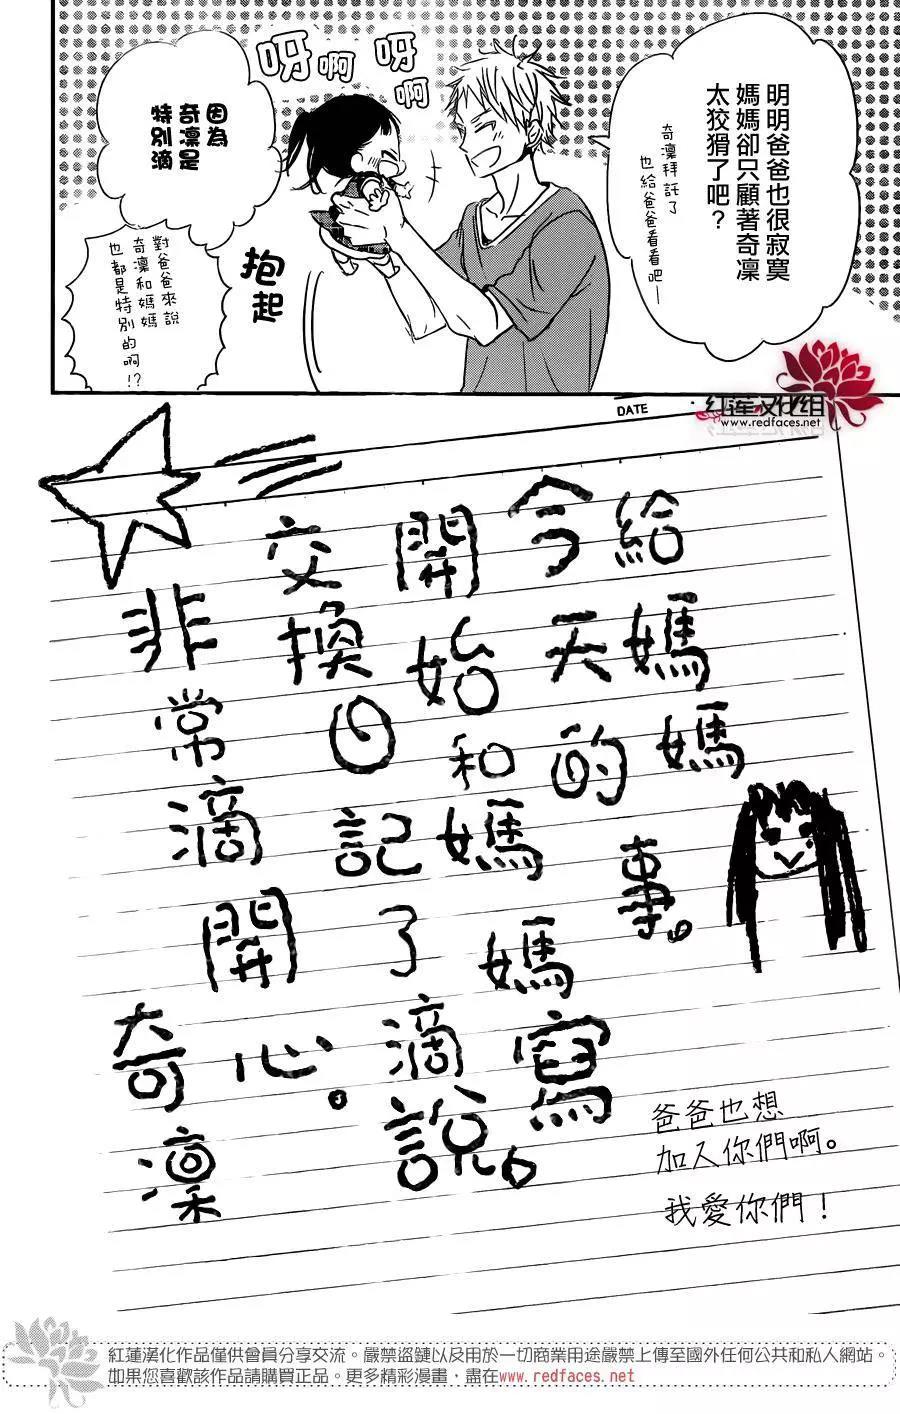 明明爸爸也很寂寞
媽媽卻只顧著奇凜
太狡猾了吧？
奇凜拜託了
也給爸爸看看吧—
呀啊呀啊
抱起
因為
奇凜是
特別滴
對爸爸來說
奇凜和媽媽
也都是特別的啊!?
紅蓮文化組
www.redfaces.net
DATE
給媽媽
今天的事。
開始和媽媽寫
交換日記了滴說。
非常滴開心。
奇凜
爸爸也想
加入你們啊。
我愛你們！
紅蓮漢化作品僅供會員分享交流。嚴禁盜鏈以及用於一切商業用途嚴禁上傳至國外任何公共和私人網站。
如果您喜歡該作品請購買正品。更多精彩漫畫，盡在www.redfaces.net